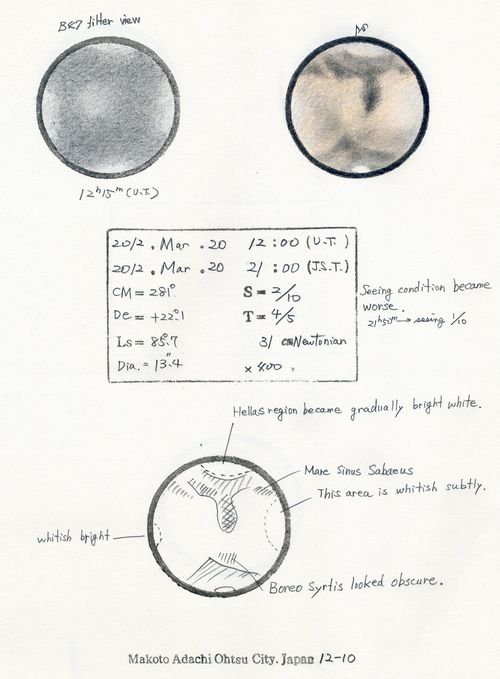 B&7 filter view
12h15m (U.T.)
2012 . Mar . 20 12 : 00 (U.T.)
2012 . Mar . 20 21 : 00 (J.S.T.)
CM = 281° S = 2/10
De = +22°.1 T = 4/5
Ls = 85°.7 31 cmNewtonian
Dia. = 13".4 × 400 ×
Seeing condition became
worse.
21h50m → seeing 1/10
Hellas region became gradually bright white.
Mare Sinus Sabaeus
This area is whitish subtly.
whitish bright
Boreo Syrtis looked obscure.
Makoto Adachi Ohtsu City. Japan 12-10